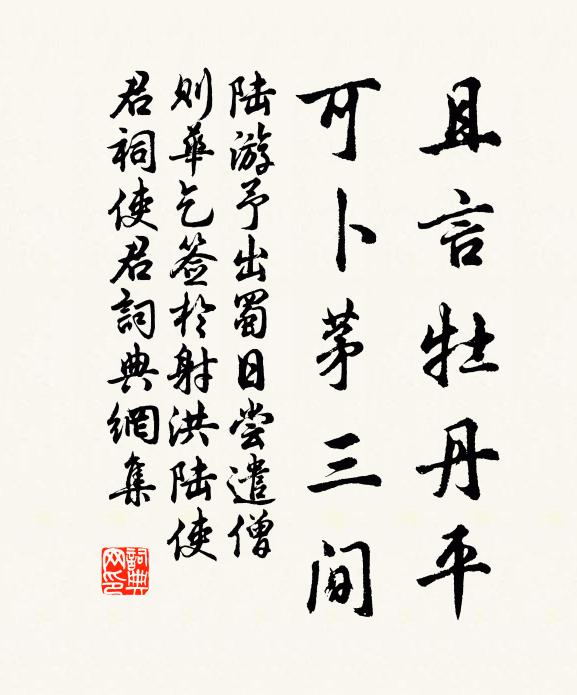 且言牡丹平
可卜茅三间
陆游予出蜀日尝遣僧
则华乞签於射洪陆使
君祠使君詞典網集
詞典网印